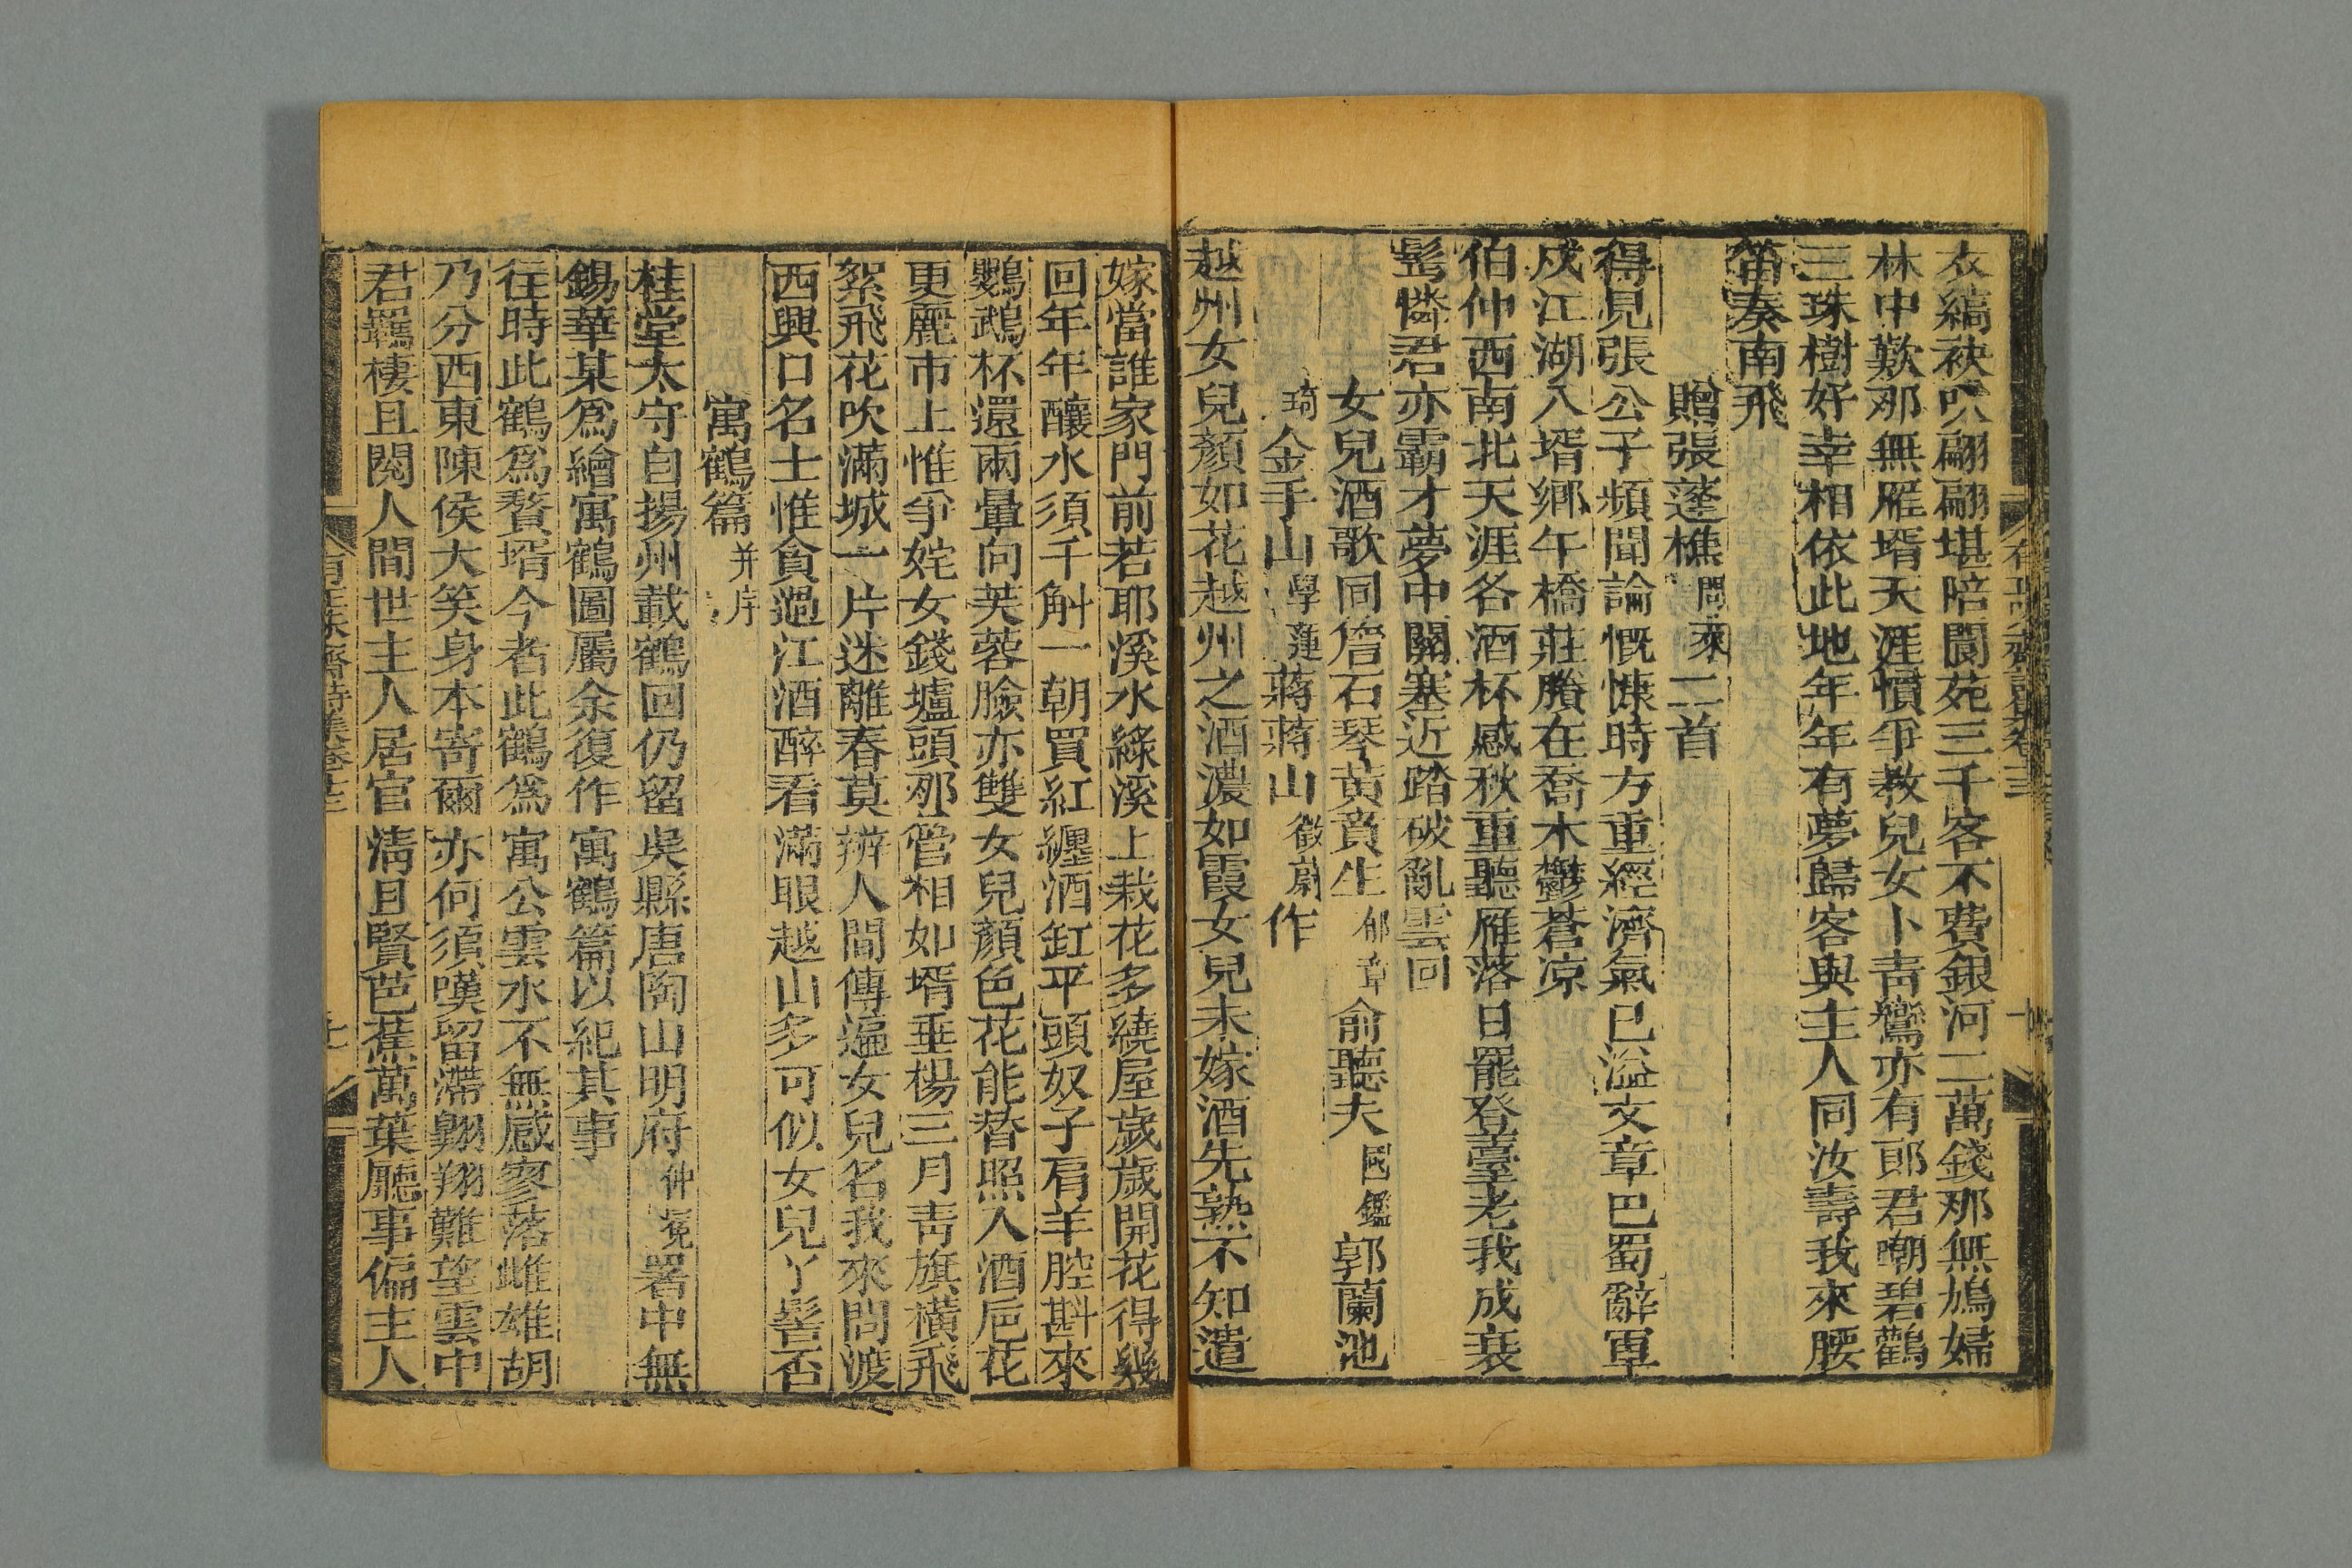 衣縞袂以翩翩堪陪閬苑三千客不費銀河二萬錢那無鳩婦
林中歎那無雁壻天涯慣爭教兒女卜青鸞亦有郎君嘲碧鸛
三珠樹好幸相依此地年年有夢歸客與主人同汝壽我來腰
笛奏南飛
贈張蓬樵問萊二首
得見張公子頻聞論慨慷時方重經濟氣已溢文章巴蜀辭軍
戍江湖入壻鄉午橋莊賸在喬木鬱蒼凉
伯仲西南北天涯各酒杯感秋重聽雁落日罷登臺老我成衰
髩憐君亦霸才夢中關塞近踏破亂雲回
女兒酒歌同詹石琴黃賁生郁章俞聽夫國鑑郭蘭池
琦金手山學蓮蔣蔣山徵蔚作
越州女兒顏如花越州之酒濃如霞女兒未嫁酒先熟不知遣
嫁當誰家門前若耶溪水綠溪上栽花多繞屋歲歲開花得幾
回年年釀水須千斛一朝買紅纏酒缸平頭奴子肩羊腔斟來
鸚鵡杯還兩暈向芙蓉臉亦雙女兒顏色花能替照入酒巵花
更麗市上惟爭姹女錢壚頭那管相如壻垂楊三月青旗橫飛
絮飛花吹滿城一片迷離春莫辨人間傳遍女兒名我來問渡
西興口名士惟貪過江酒醉看滿眼越山多可似女兒丫髻否
寓鶴篇并序
桂堂太守自揚州載鶴回仍留吳縣唐陶山明府仲冕署中無
錫華某爲繪寓鶴圖屬余復作寓鶴篇以紀其事
往時此鶴爲贅壻今者此鶴爲寓公雲水不無感寥落雌雄胡
乃分西東陳侯大笑身本寄爾亦何須嘆留滯翺翔難望雲中
君羈棲且閱人間世主人居官淸且賢芭蕉萬葉廳事偏主人